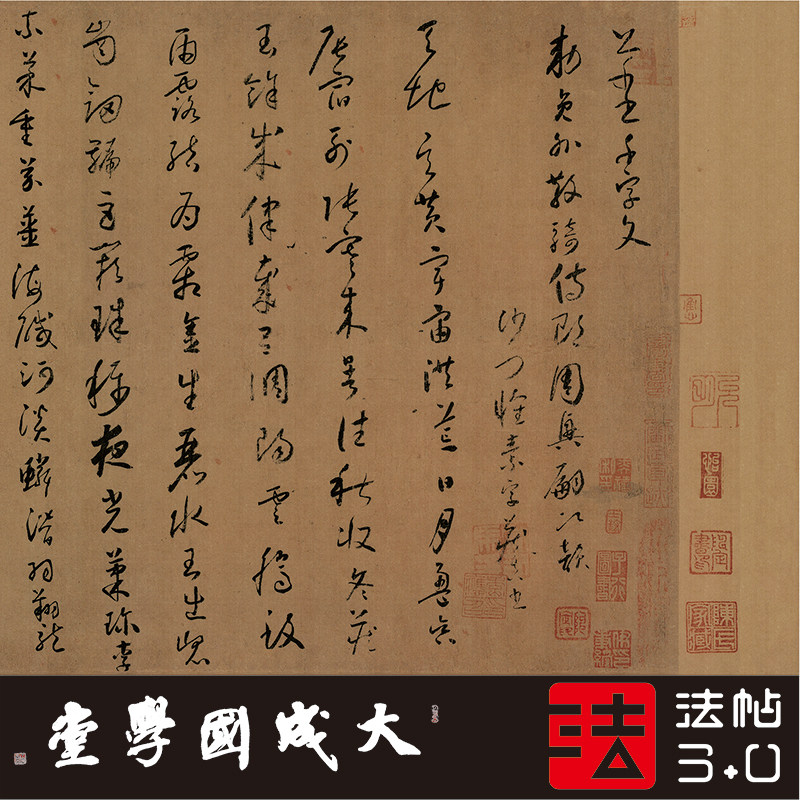 千字文
勅員外散騎侍郎周興嗣次韻
沙門懷素字藏真書
天地玄黃宇宙洪荒日月盈昃
辰宿列張寒來暑往秋收冬藏
閏餘成律歲呂調陽雲騰致
雨露結為霜金生麗水玉出崐
崗劍號巨闕珠稱夜光菓珍李
柰菜重芥薑海醎河淡鱗潛羽翔龍
大成國學堂
法
法帖
3.0